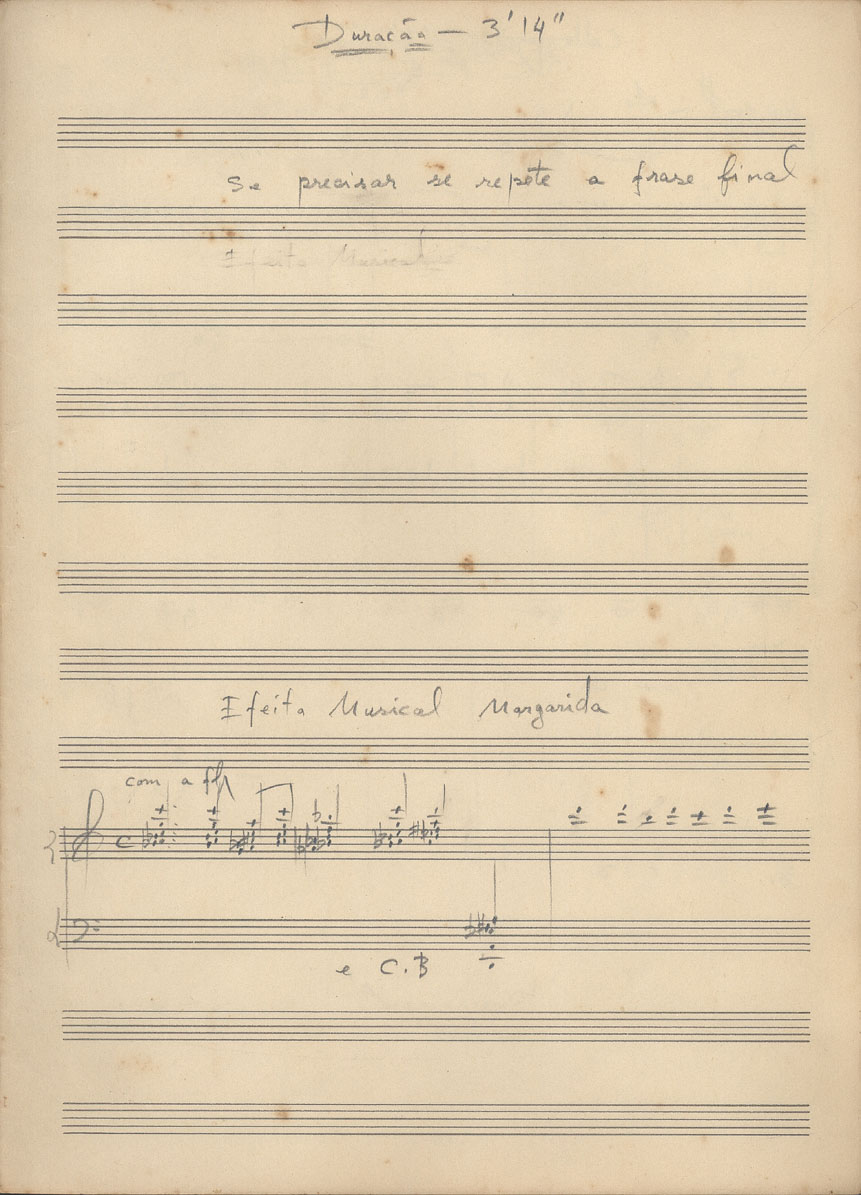 Duração — 3'14"
Se precisar se repete a frase final
Efeito Musical
Efeito Musical Margarida
com a
e C.B